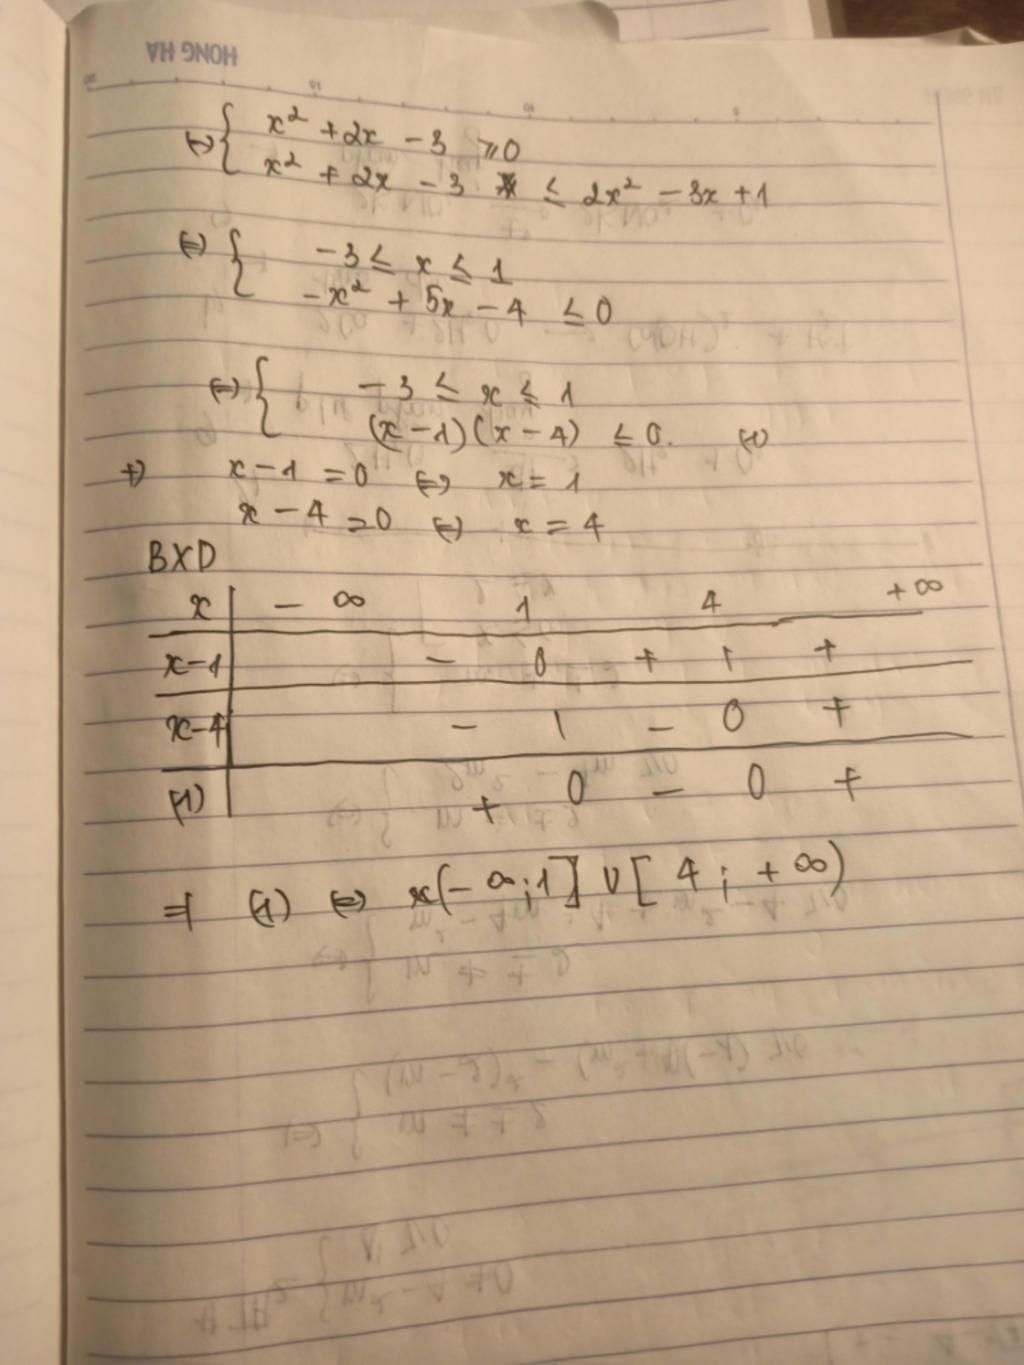 HONG HA
(=) { x² + 2x - 3 ⩾ 0
x² + 2x - 3 ≤ 2x² - 3x + 1
(=) { -3 ≤ x ≤ 1
-x² + 5x - 4 ≤ 0
(=) { -3 ≤ x ≤ 1
(x-1)(x-4) ≤ 0. (1)
+) x-1 = 0 (=) x = 1
x - 4 = 0 (=) x = 4
BXD
x | - ∞ 1 4 + ∞
x-1 | - 0 + | +
x-4 | - | - 0 +
(1) | + 0 - 0 +
=) (1) (=) x(-∞;1] ∪ [4; +∞)